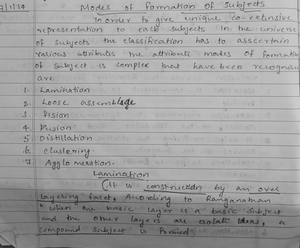 7/1/19
Modes of Formation of Subjects
In order to give unique co-extensive
representation to each subjects in the universe
of subjects the classification has to asscertain
various attributes the attribute modes of formation
of subject is complex that have been recognized
are
1. Lamination
2. Loose assemblage
3. Fission
4. Fusion
5. Distillation
6. Clustering.
7. Agglomeration.
Lamination
It is construction by an over
layering facet, According to Ranganathan
"When the basic layer is a basic subject
and the other layers are isolate ideas, a
compound subject is formed"